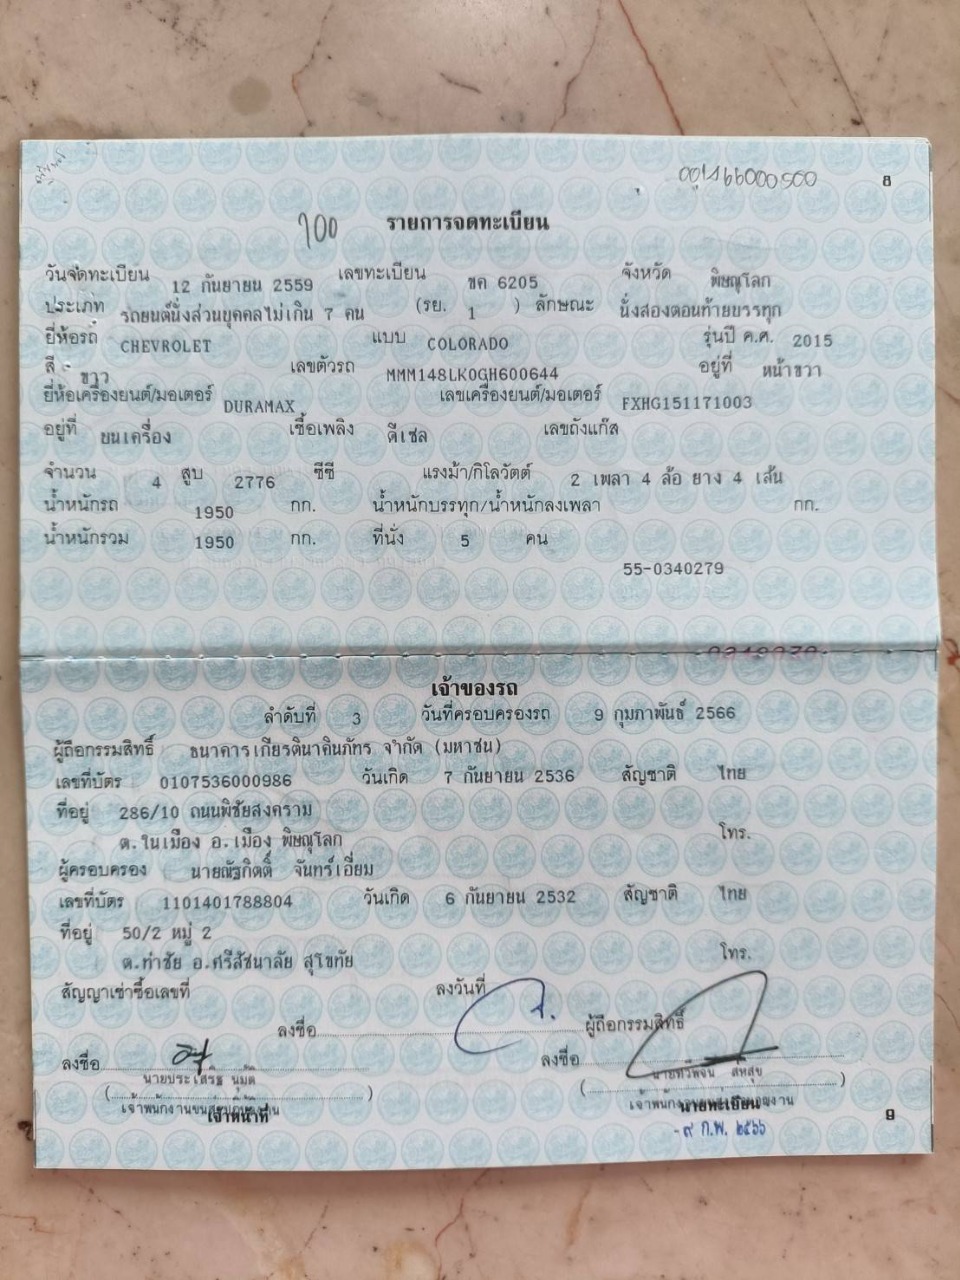 001166000500 8
700 รายการจดทะเบียน
วันจดทะเบียน 12 กันยายน 2559 เลขทะเบียน ขค 6205 จังหวัด พิษณุโลก
ประเภท รถยนต์นั่งส่วนบุคคลไม่เกิน 7 คน (รย. 1 ) ลักษณะ นั่งสองตอนท้ายบรรทุก
ยี่ห้อรถ CHEVROLET แบบ COLORADO รุ่นปี ค.ศ. 2015
สี ขาว เลขตัวรถ MMM148LK0GH600644 อยู่ที่ หน้าขวา
ยี่ห้อเครื่องยนต์/มอเตอร์ DURAMAX เลขเครื่องยนต์/มอเตอร์ FXHG151171003
อยู่ที่ บนเครื่อง เชื้อเพลิง ดีเซล เลขถังแก๊ส
จำนวน 4 สูบ 2776 ซีซี แรงม้า/กิโลวัตต์ 2 เพลา 4 ล้อ ยาง 4 เส้น
น้ำหนักรถ 1950 กก. น้ำหนักบรรทุก/น้ำหนักลงเพลา กก.
น้ำหนักรวม 1950 กก. ที่นั่ง 5 คน
55-0340279
เจ้าของรถ
ลำดับที่ 3 วันที่ครอบครองรถ 9 กุมภาพันธ์ 2566
ผู้ถือกรรมสิทธิ์ ธนาคารเกียรตินาคินภัทร จำกัด (มหาชน)
เลขที่บัตร 0107536000986 วันเกิด 7 กันยายน 2536 สัญชาติ ไทย
ที่อยู่ 286/10 ถนนพิชัยสงคราม
ต.ในเมือง อ.เมือง พิษณุโลก โทร.
ผู้ครอบครอง นายณัฐกิตติ์ จันทร์เอี่ยม
เลขที่บัตร 1101401788804 วันเกิด 6 กันยายน 2532 สัญชาติ ไทย
ที่อยู่ 50/2 หมู่ 2
ต.ท่าชัย อ.ศรีสัชนาลัย สุโขทัย โทร.
สัญญาเช่าซื้อเลขที่ ลงวันที่
ลงชื่อ ผู้ถือกรรมสิทธิ์
ลงชื่อ ลงชื่อ
นายประเสริฐ นุมัติ
( ) ( )
เจ้าหน้าที่ นายทะเบียน
- ๙ ก.พ. ๒๕๖๖ 9